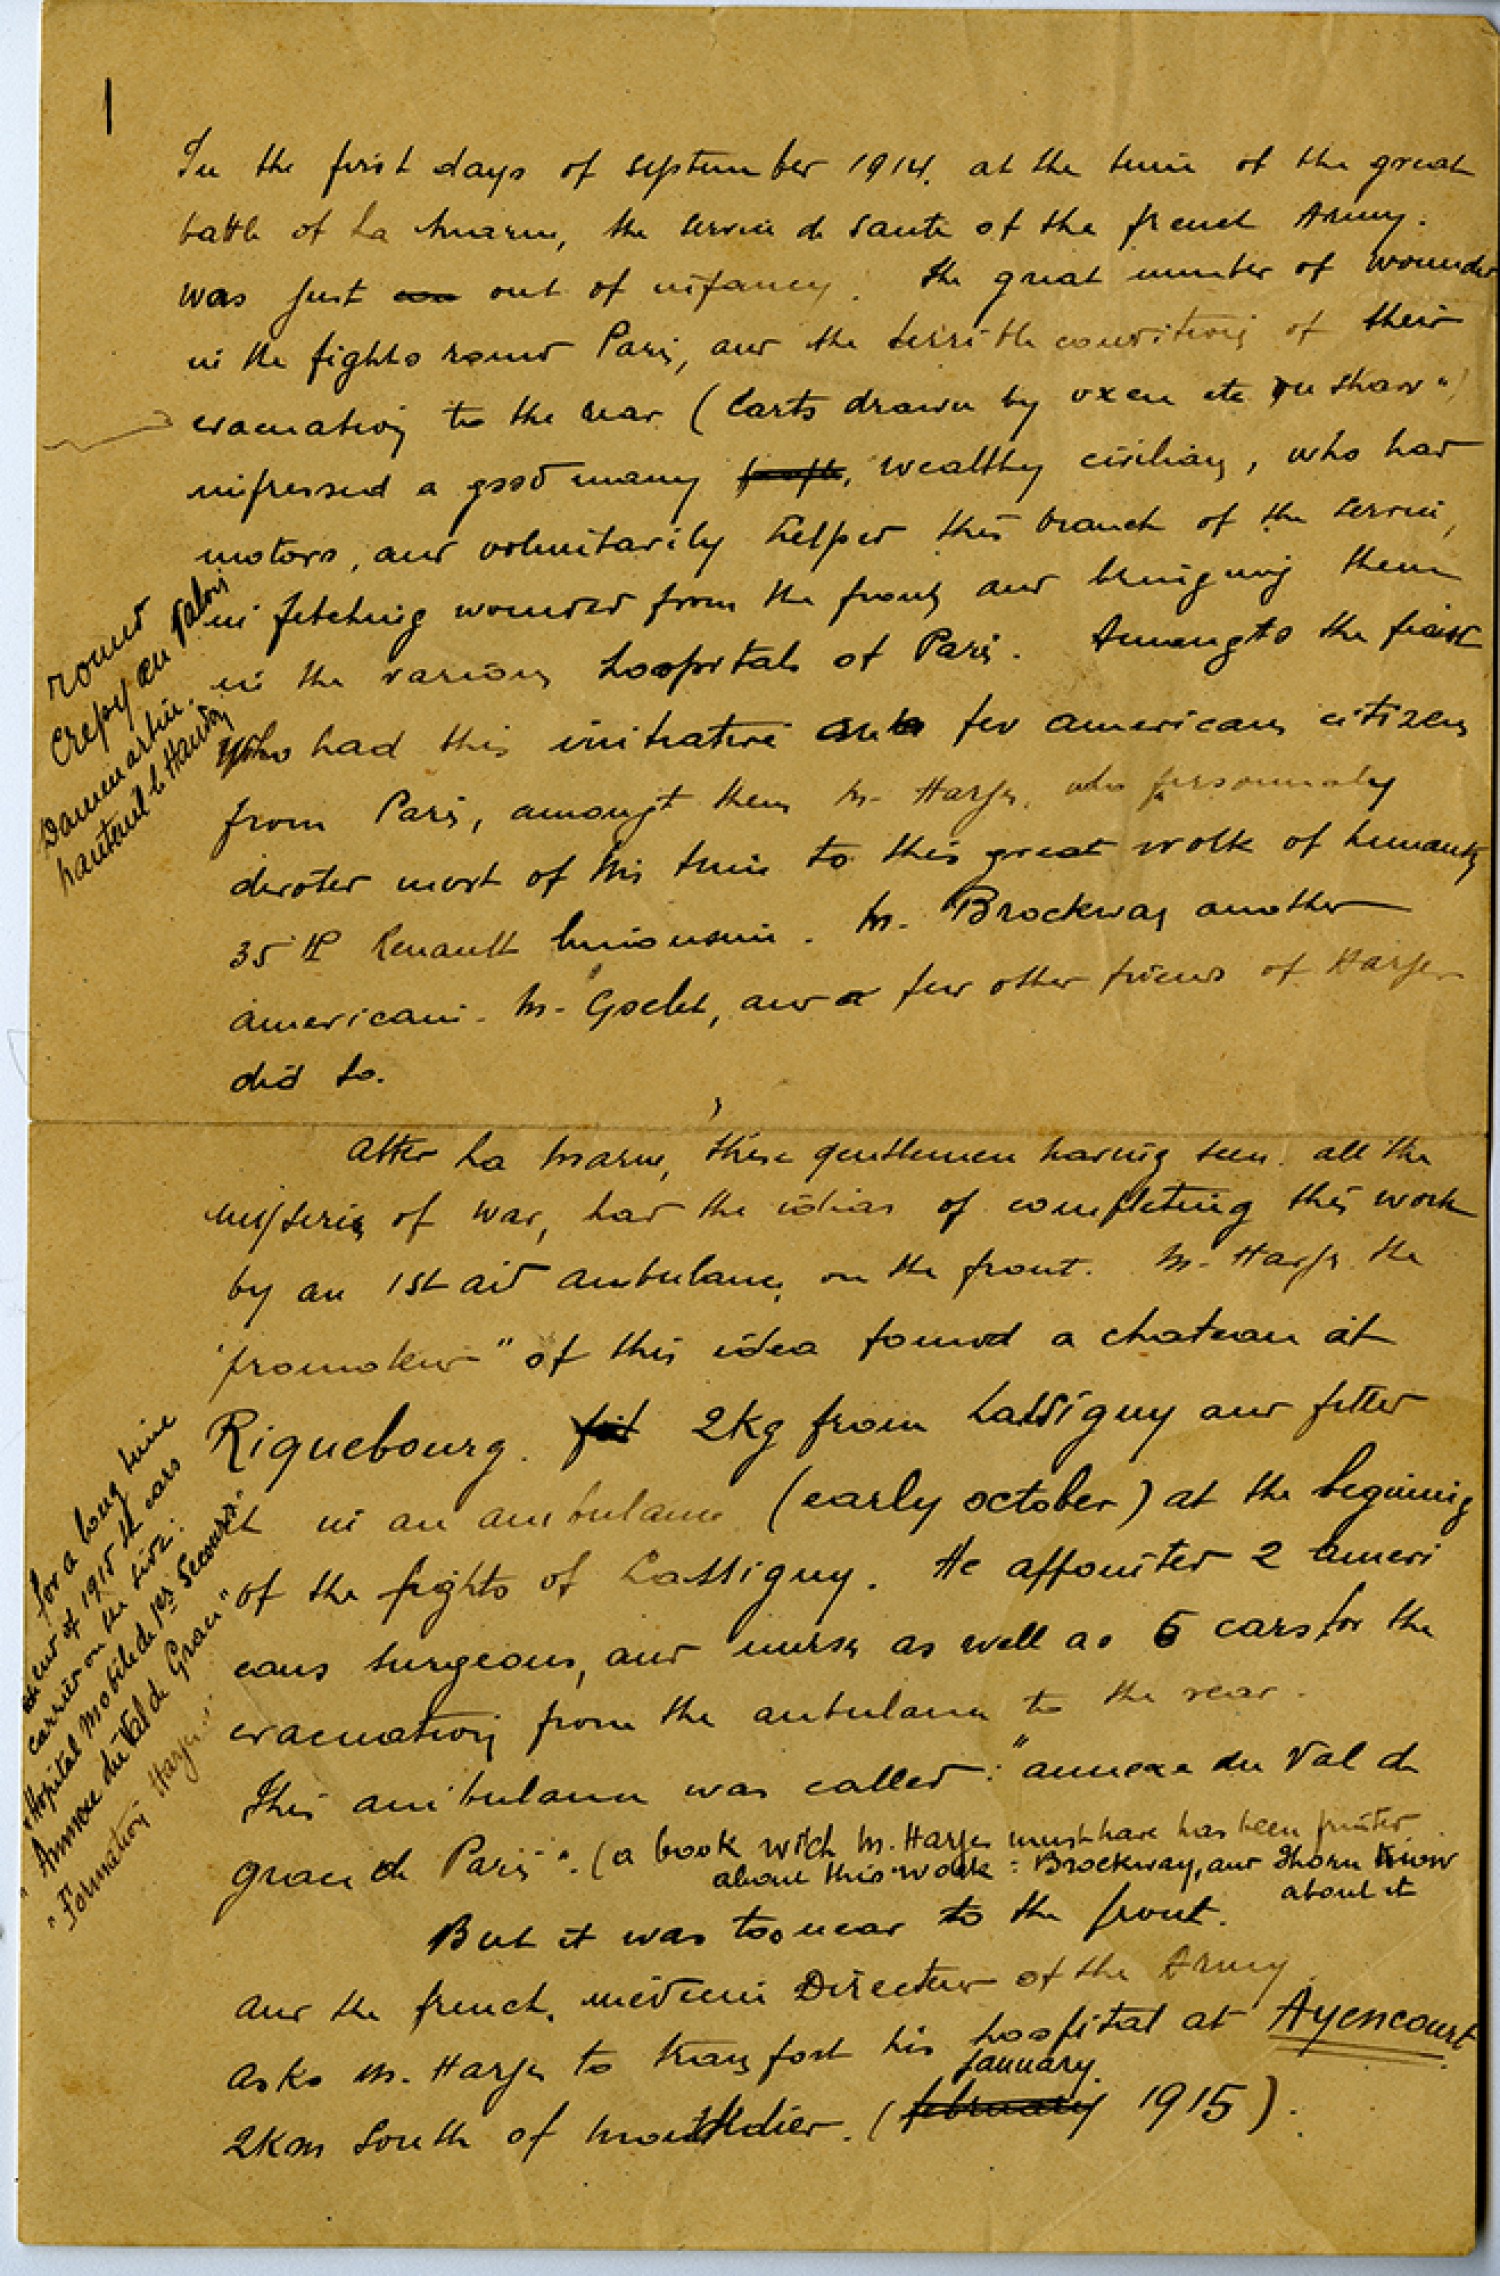 1
In the first days of september 1914. at the time of the great
battle of La Marne, the service de sante of the french Army.
was just out of infancy. the great number of wounded
in the fights round Paris, and the terrible conditions of their
evacuation to the rear (Carts drawn by oxen etc on straw")
impressed a good many wealthy civilians, who had
motors, and voluntarily helped this branch of the service,
in fetching wounded from the front and bringing them
in the various hospitals of Paris. Amongts the first
who had this initiative few americans citizens
from Paris, amongt them M- Harjes, who personnaly
devoted most of his time to this great work of humanity
35 HP Renault limousine. M. Brockway another
american- M- Goelet, and a few other friends of Harjes
did so.
round
Crepy en Valois
Dammartin.
Nanteuil le Haudoin
After La Marne, these gentlemen having seen all the
mysteries of war, had the ideas of completing this work
by an 1st aid ambulance, on the front. M- Harjes the
"promoteur" of this idea found a chateau at
Riquebourg. 2kg from Lassigny and fitted
it in an ambulance (early october) at the begining
of the fights of Lassigny. He appointed 2 ameri
cans surgeons, and nurses as well as 6 cars for the
evacuation from the ambulance to the rear.
This ambulance was called: "annexe du Val de
grace de Paris". (a book wich M. Harjes must have has been printed
about this work: Brockway, and Thorn know
about it
But it was too near to the front.
and the french, médecin Directeur of the Army
asks M. Harjes to transport his hospital at Ayencourt
january.
2km South of Montdidier. (february 1915).
for a long time
end of 1915 the cars
carried on the side:
"Hopital Mobile de 1er Secours"
"Annexe du Val de Grace"
"Formation Harjes"